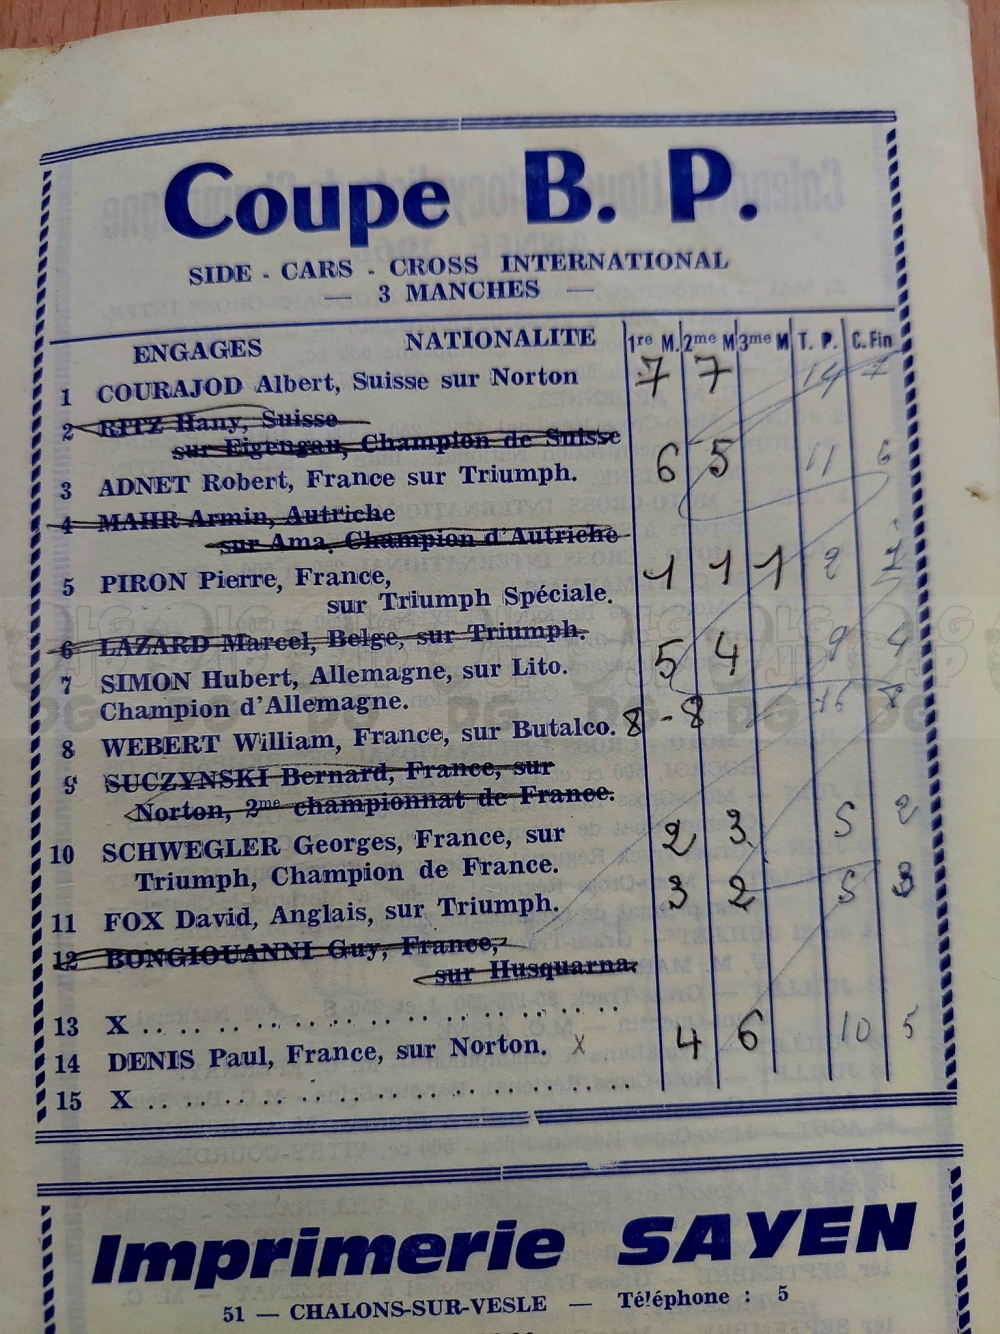 Coupe B. P.
SIDE - CARS - CROSS INTERNATIONAL
— 3 MANCHES —
ENGAGES NATIONALITE 1re M. 2me M 3me M T. P. C. Fin
1 COURAJOD Albert, Suisse sur Norton 7 7 14 7
2 RITZ Hany, Suisse
sur Eigengau, Champion de Suisse
3 ADNET Robert, France sur Triumph. 6 5 11 6
4 MAHR Armin, Autriche
sur Ama, Champion d'Autriche
5 PIRON Pierre, France, 1 1 1 2 1
sur Triumph Spéciale.
6 LAZARD Marcel, Belge, sur Triumph.
7 SIMON Hubert, Allemagne, sur Lito. 5 4 9 4
Champion d'Allemagne.
8 WEBERT William, France, sur Butalco. 8 - 8 16 8
9 SUCZYNSKI Bernard, France, sur
Norton, 2me championnat de France.
10 SCHWEGLER Georges, France, sur 2 3 5 2
Triumph, Champion de France.
11 FOX David, Anglais, sur Triumph. 3 2 5 3
12 BONGIOUANNI Guy, France,
sur Husquarna.
13 X . . . . . . . . . . . . . . . . . . . . . . . . .
14 DENIS Paul, France, sur Norton. X 4 6 10 5
15 X . . . . . . . . . . . . . . . . . . . . . . . . .
Imprimerie SAYEN
51 — CHALONS-SUR-VESLE — Téléphone : 5